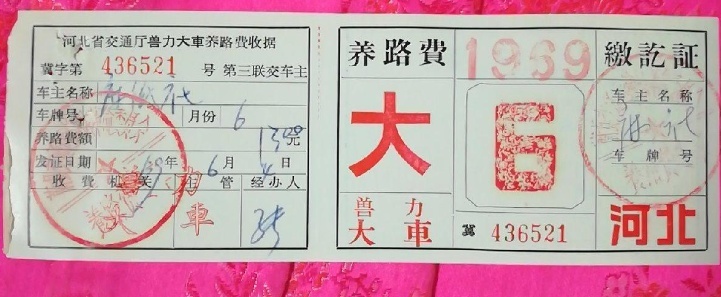 河北省交通厅兽力大車养路費收据
冀字第 436521 号 第三联交车主
车主名称
车牌号 月份 6
养路費額 元
发証日期 69年 6月 4日
收費机关 主管 经办人
力
車
养路費
大
兽力
大車
1969
6
冀 436521
繳訖証
车主名称
车牌号
河北